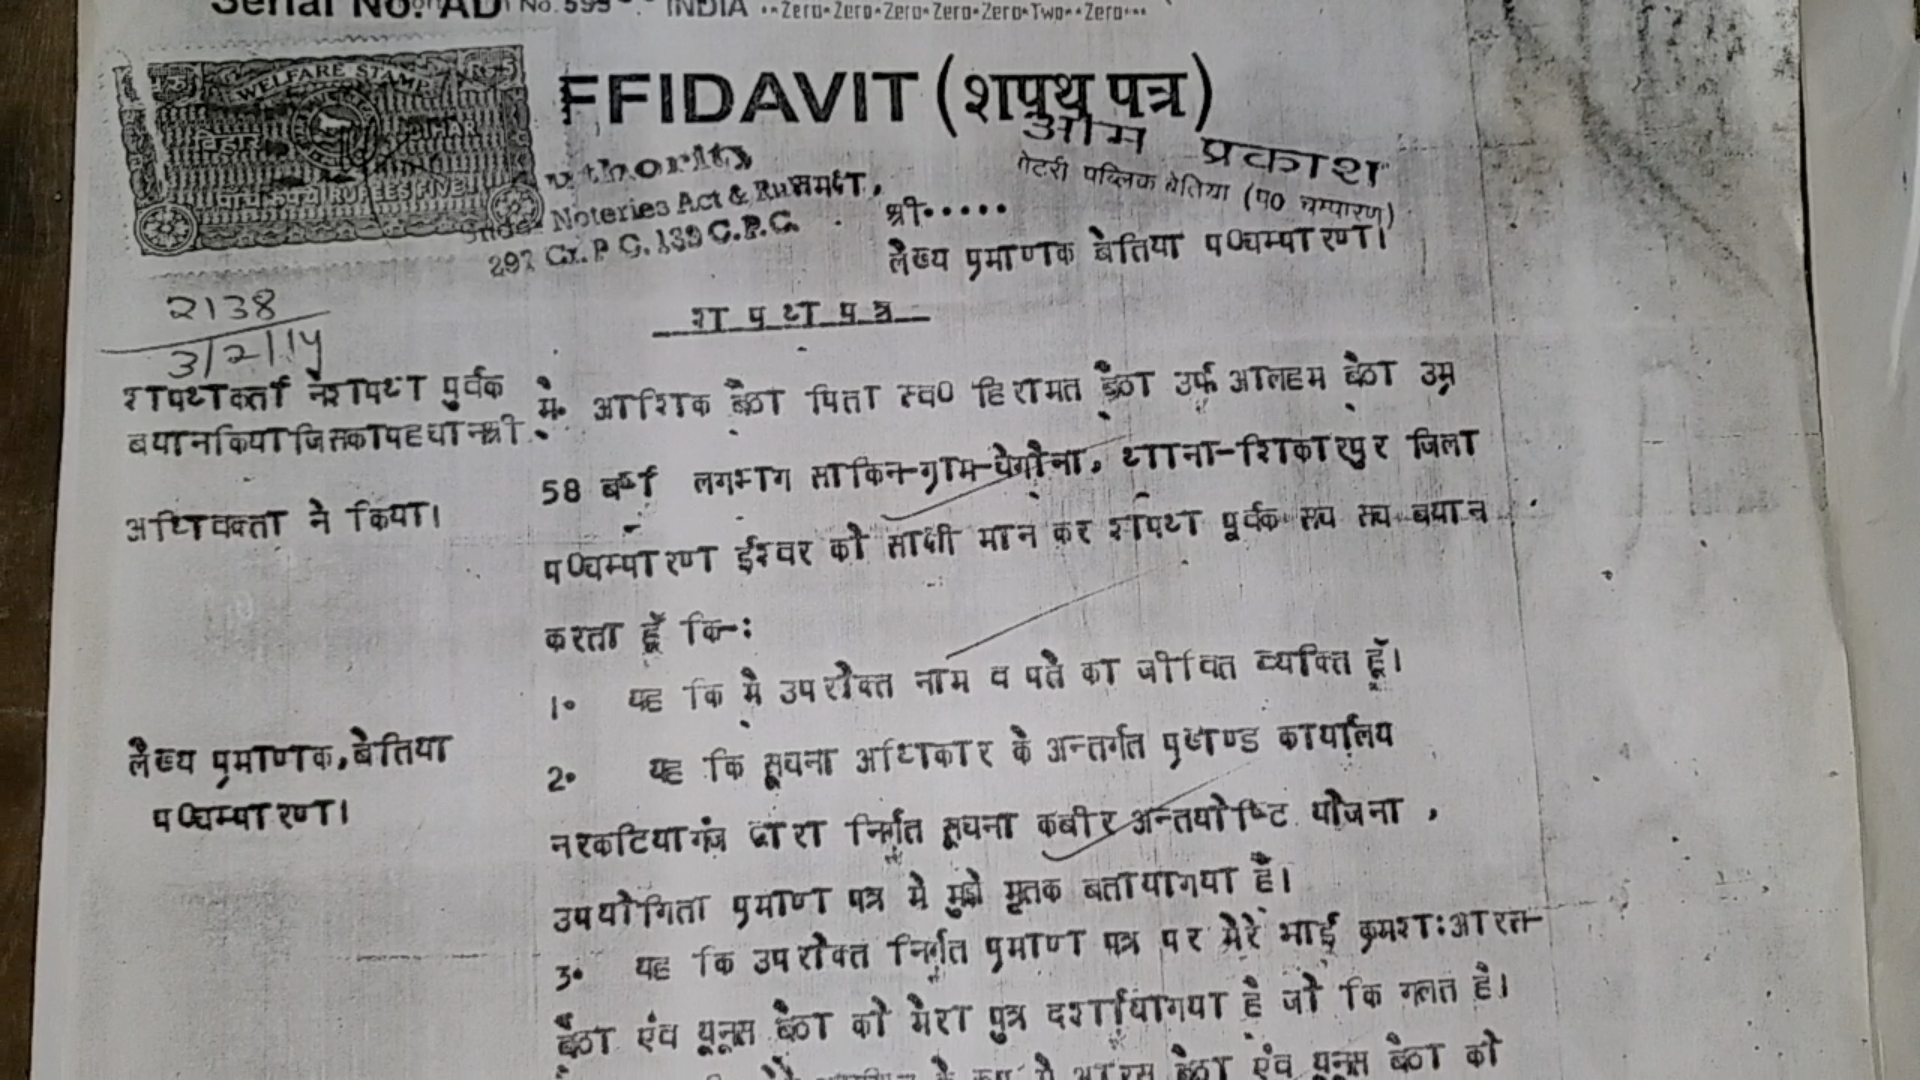 Serial No. AD No. 599 INDIA Zero-Zero-Zero-Zero-Zero-Two-Zero
WELFARE STAMP
बिहार BIHAR
पांच रूपये RUPEES FIVE
FFIDAVIT (शपथ पत्र)
ओम प्रकाश
uthority
Noteries Act & Ru
297 Cr. P C. 139 C.P.C.
पब्लिक बेतिया (प० चम्पारण)
समक्ष,
श्री.....
लेख्य प्रमाणक बेतिया प०चम्पारण।
श प थ प त्र
2138
3/2/14
शपथकर्ता ने शपथ पुर्वक
बयान किया जिसका पहचान श्री
अधिवक्ता ने किया।
लेख्य प्रमाणक, बेतिया
प०चम्पारण।
मै. आशिक बैठा पिता स्व० हिरामत बैठा उर्फ आलहम बैठा उम्र
58 बर्ष लगभग साकिन-ग्राम- थाना-शिकारपुर जिला
प०चम्पारण ईश्वर को साक्षी मान कर शपथ पूर्वक सच सच बयान
करता हूँ कि-:
1. यह कि मै उपरोक्त नाम व पते का जीवित व्यक्ति हूँ।
2. यह कि सूचना अधिकार के अन्तर्गत प्रखण्ड कार्यालय
नरकटियागंज द्वारा निर्गत सूचना कबीर अन्तयोष्टि योजना ,
उपयोगिता प्रमाण पत्र मे मुझे मृतक बताया गया है।
3. यह कि उपरोक्त निर्गत प्रमाण पत्र पर मेरे भाई क्रमशः आरत-
बैठा एंव यूनूस बैठा को मेरा पुत्र दर्शाया गया है जो कि गलत है।
के रूप मे आरस बैठा एंव यूनूस बैठा को